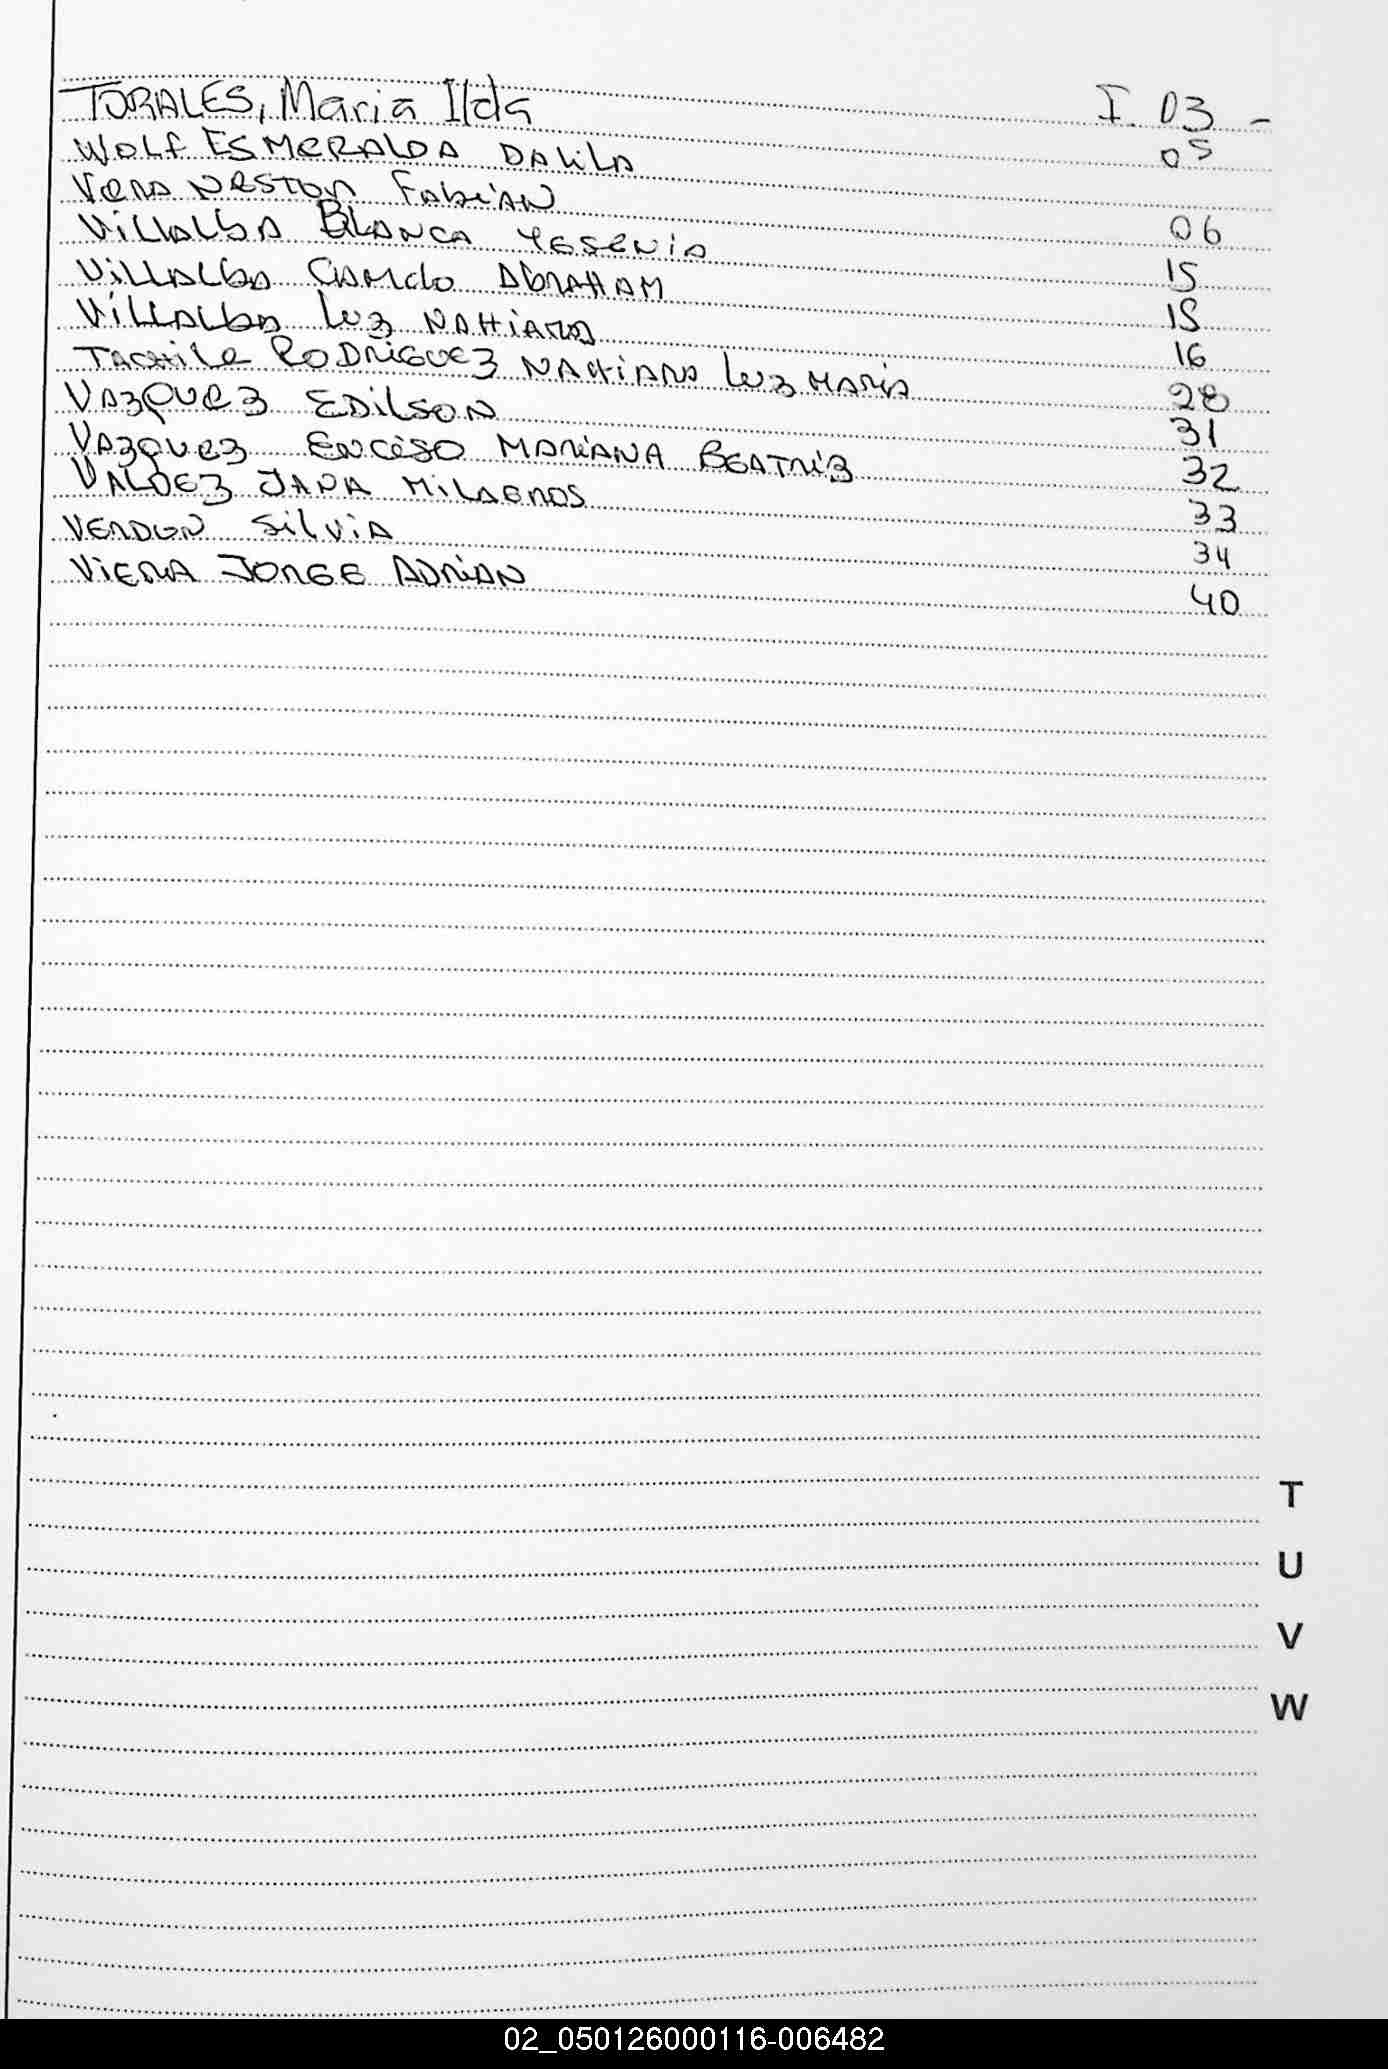 TORALES, Maria Ilda I. 03 -
WOLF ESMERALDA DALILA 05
VERA NESTOR FABIAN 06
VILLALBA BLANCA YESENIA 15
VILLALBA CAMILO ABRAHAM 15
VILLALBA LUZ NAHIARA 16
RODRIGUEZ NAHIARA LUZ MARIA 28
VAZQUEZ EDILSON 31
VAZQUEZ ENCISO MARIANA BEATRIZ 32
VALDEZ JANA MILAGROS 33
VERDUN SILVIA 34
VIERA JORGE ADRIAN 40
T
U
V
W
02_050126000116-006482